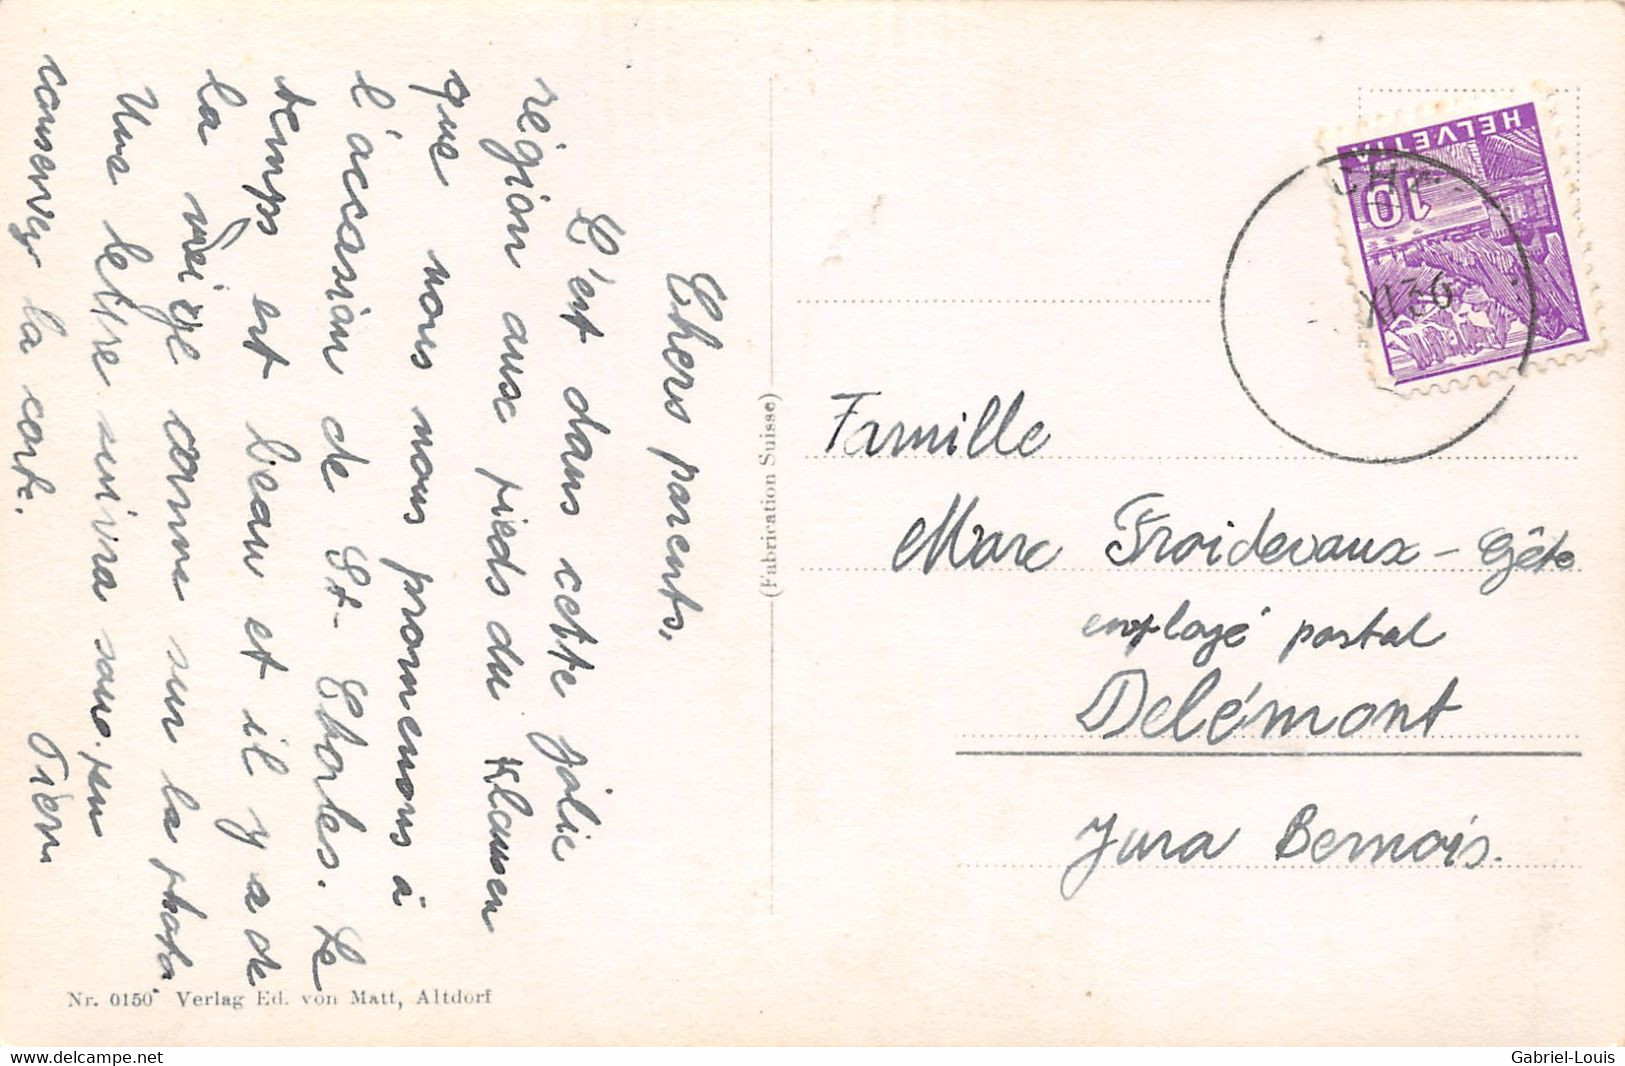 Chers parents,
C'est dans cette jolie
région aux pieds du Klausen
que nous nous promenons à
l'occasion de St-Charles. Le
temps est beau et il y a de
la neige comme sur la photo
Une lettre suivra sous-peu
conservez la carte.
Pierre
(Fabrication Suisse)
HELVETIA
10
XI 36
Famille
Marc Froidevaux - Gête
employé postal
Delémont
Jura Bernois.
Nr. 0150 Verlag Ed. von Matt, Altdorf
www.delcampe.net
Gabriel-Louis